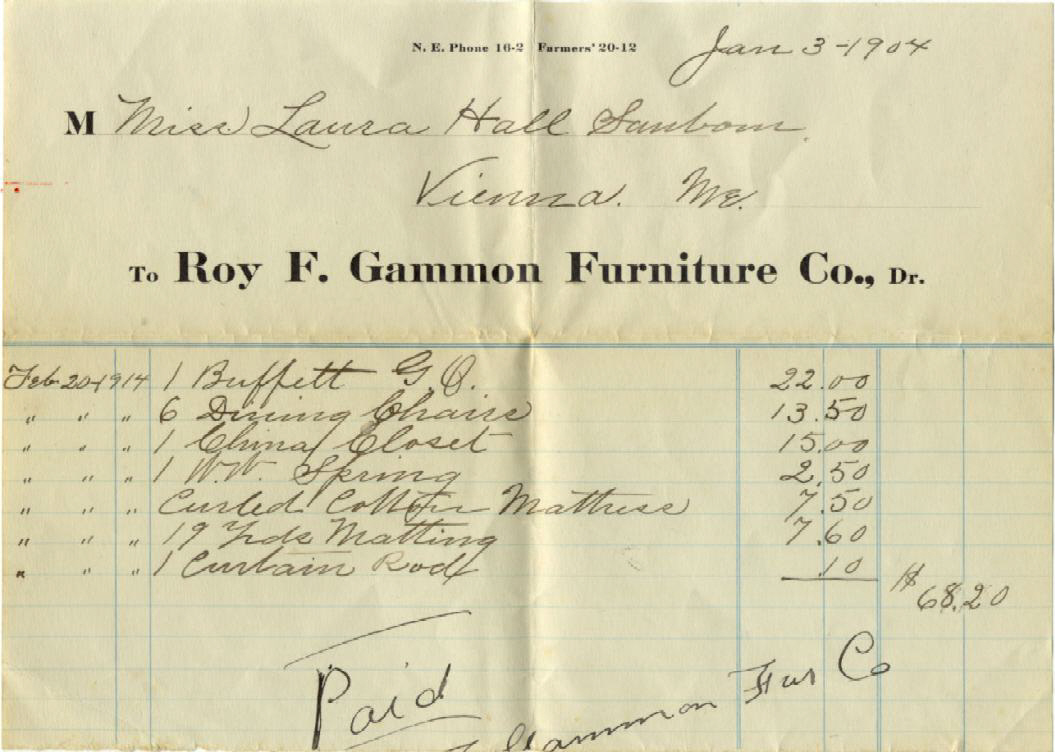 N. E. Phone 16-2 Farmers' 20-12 Jan 3-1904
M Miss Laura Hall Sanborn
Vienna. Me.
To Roy F. Gammon Furniture Co., Dr.
Feb 20-1914 1 Buffett G.O. 22.00
" " " 6 Dining Chairs 13.50
" " " 1 China Closet 15.00
" " " 1 W.W. Spring 2.50
" " " Curled Cotton Mattress 7.50
" " " 19 Yds Matting 7.60
" " " 1 Curtain Rod .10
$ 68.20
Paid
Gammon Fur Co